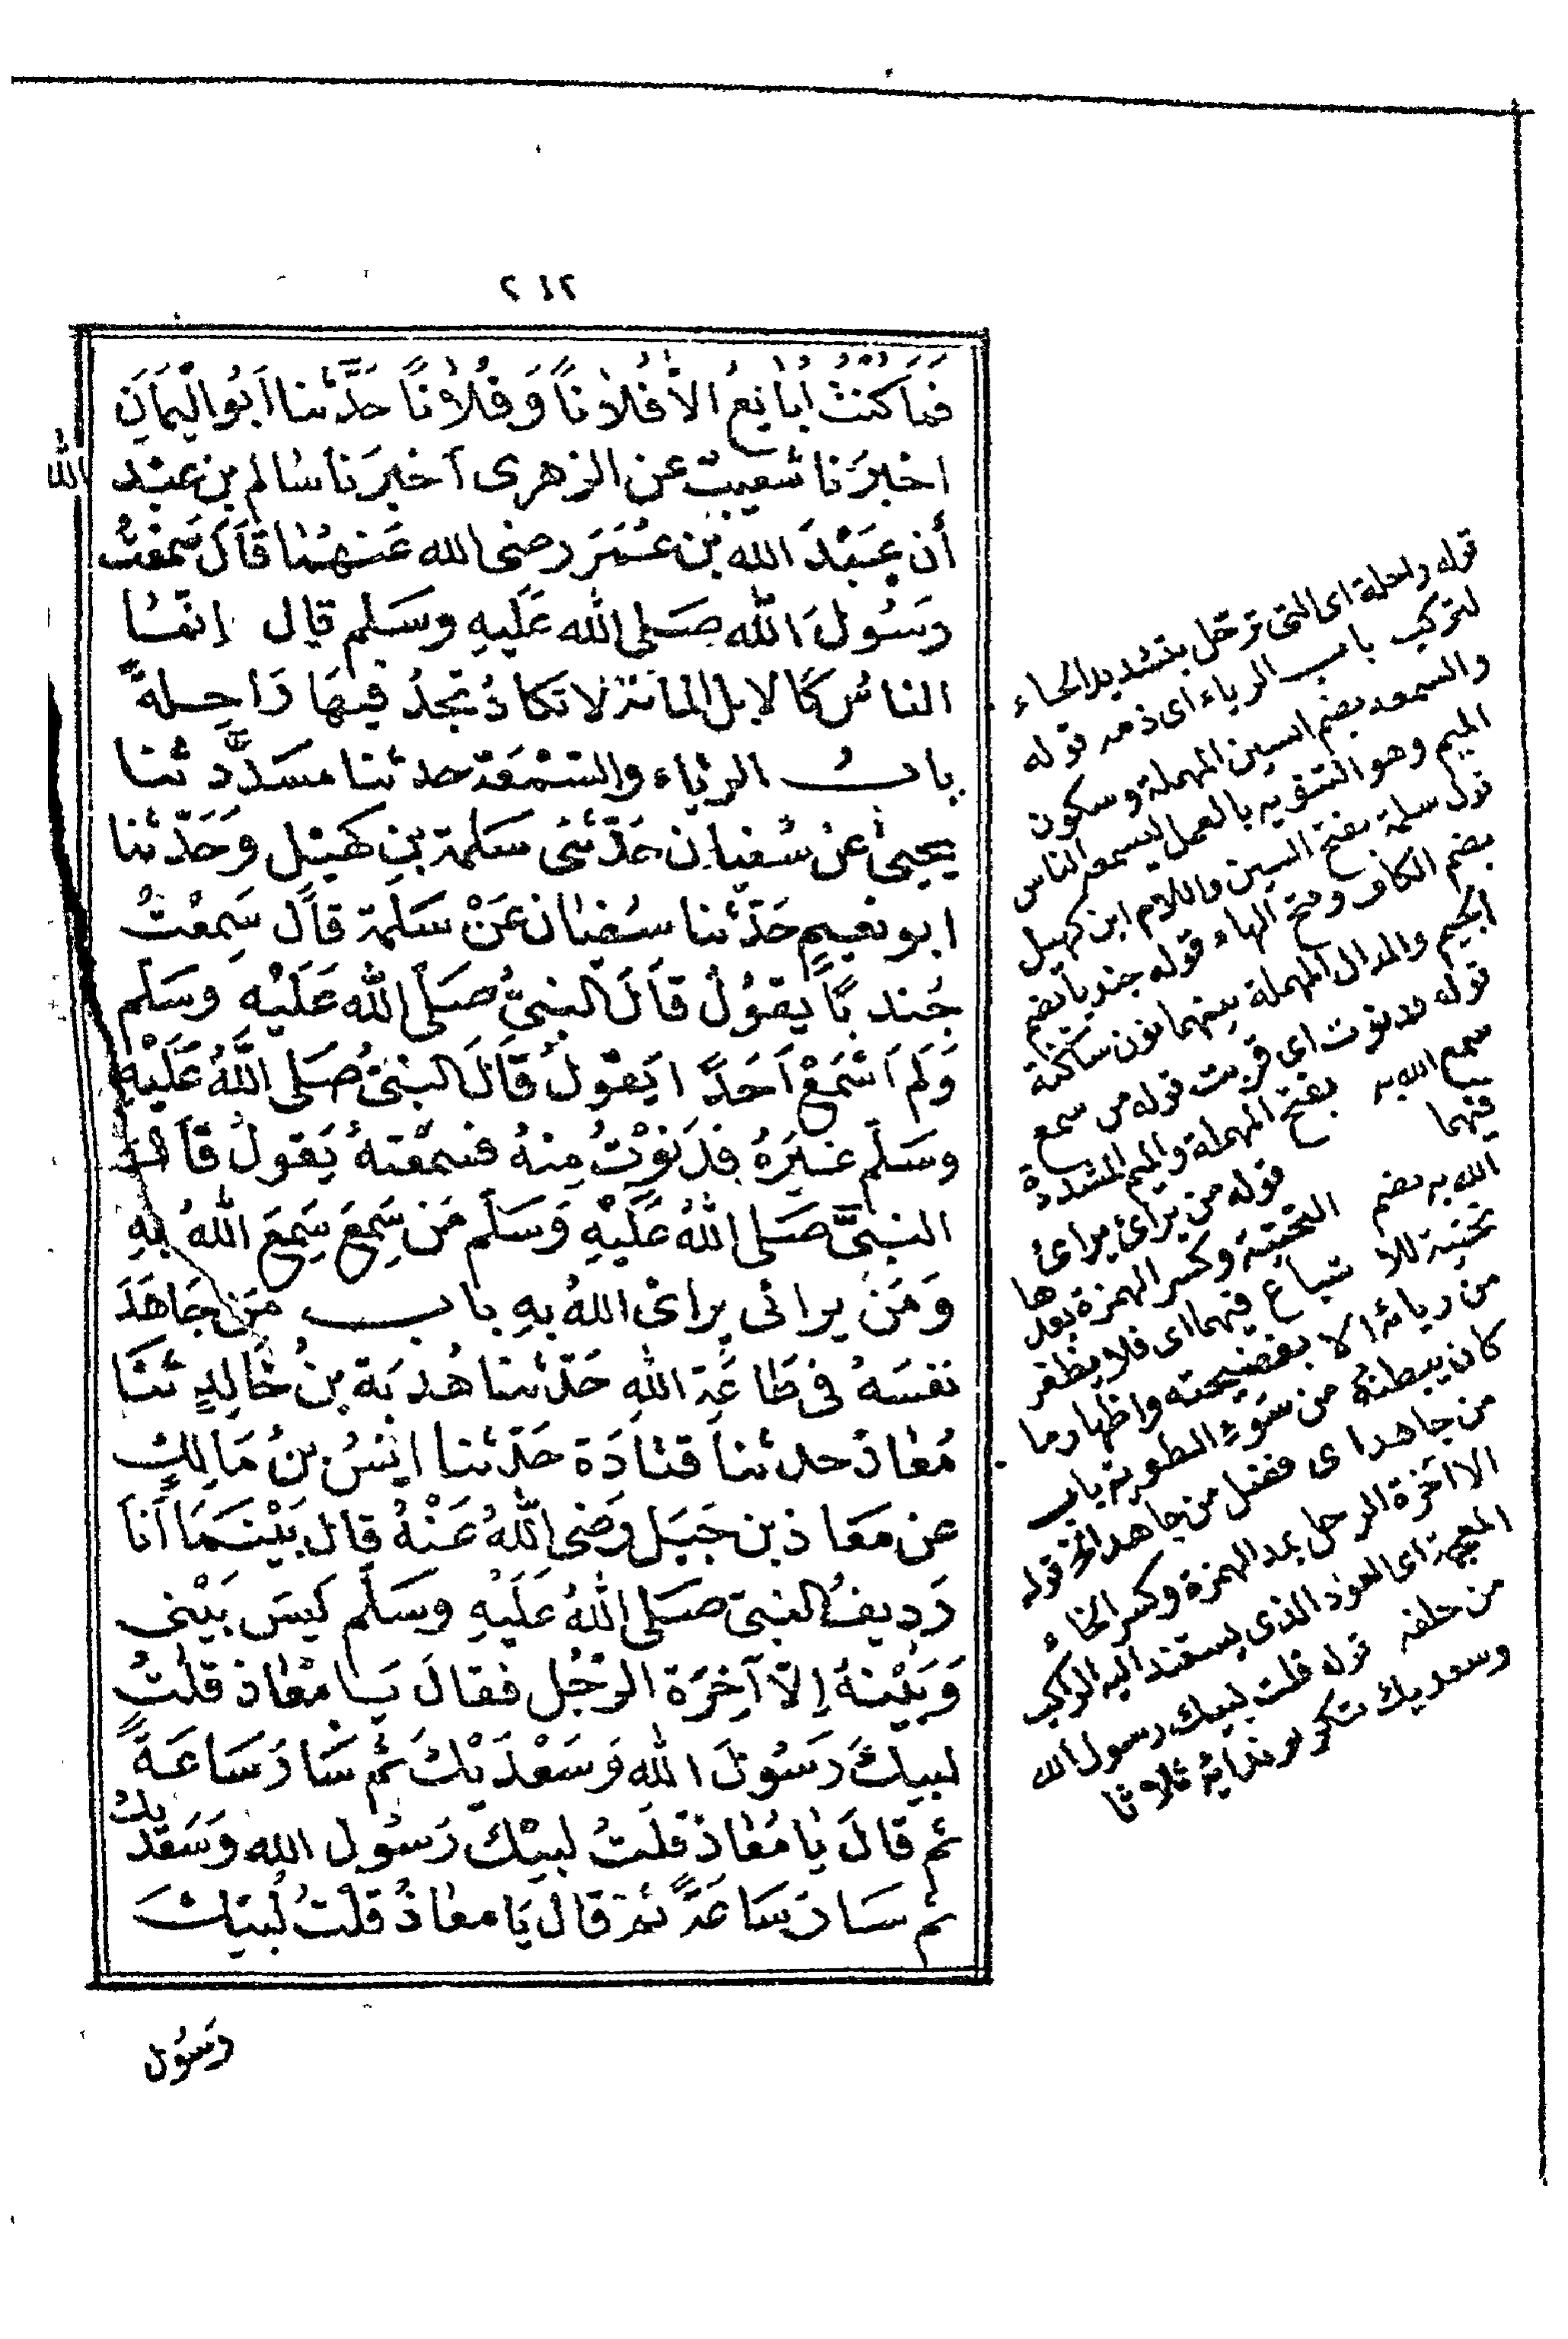 ٢١٢
فَمَا كُنْتُ أُبَايِعُ الَّا فُلَانًا وَفُلَانًا حَدَّثَنا اَبُو الْيَمَانِ
اخبَرَنا شعيبٌ عن الزهرى اَخبرَنا سَالم بن عَبْد الله
أن عَبْدَ الله بْن عُمَرَ رضى الله عَنهُمَا قَالَ سَمِعْتُ
رَسُولَ الله صَلى الله عَلَيهِ وسَلم قال إنَّمَا
الناسُ كَا لابل المائة لا تكادُ تجدُ فيهَا رَاحِلةً
بابُ الرياء والسُّمْعَة حدثنا مسَدَّد ثنا
يحيى عن سُفيان حَدَّثَنى سَلمة بنِ كهَيْل وَحَدّثنا
ابو نعيم حَدّثنا سفيان عَنْ سَلَمة قال سَمِعْتُ
جُندبًا يقوُلُ قاَلَ النبىُّ صَلَى الله عَلَيْهِ وسَلم
وَلم اَسْمَعْ اَحَدًا يَقولُ قَالَ النبىُّ صَلى اللهُ عَلَيْهِ
وسَلم غَيرَهُ فدَنَوْتُ مِنهُ فسَمعْتهُ يَقولُ قَالَ
النبىَّ صَلى اللهُ عَلَيْهِ وَسَلم مَن سَمِعَ سَمِعَ اللهُ بهِ
وَمَنْ يرائى يرائى اللهُ بهِ باب مَن جَاهَدَ
نفسَهُ فى طاعَة اللهِ حَدّثنا هُدبَة بنُ خَالِدٍ ثنَا
مُعاذ حدثنا قتادَة حَدّثنا انسُ بنُ مَالِكٍ
عن مَعاذ بن جَبَل رَضى اللهُ عَنْهُ قال بَيْنَمَا اَنَا
رَدِيفُ النبى صَلى اللهُ عَلَيْهِ وسَلم لَيسَ بَيْنى
وَبَيْنهُ إلّا آخِرَة الرَّحْل فقالَ يَا مُعاذ قلتُ
لبيكَ رَسُولَ الله وَسَعْدَيْكَ ثم سَارَ سَاعَةً
ثم قالَ يا مُعاذ قلتُ لبيْكَ رَسُول الله وَسَعْدَيك
ثم سَارَ سَاعَةً ثم قال يَا معاذُ قلْتُ لبيكَ
رَسُول
قوله راحلة اى التى ترحّل بتشديد الحاء
لتركب باب الرياء اى ذمه قوله
والسمعه بضم السين المهملة وسكون
الميم وهو التنويه بالعمل ليسمع الناس
قوله سلمة بفتح السين واللام ابن كهيل
بضم الكاف وفتح الهاء قوله جندبا بضم
الجيم والدال المهملة بينهما نون ساكنة
قوله فدنوت اى قربت قوله من سمع
سمع الله به بفتح المهملة والميم المشددة
فيهما قوله من يرائ يرائ
الله به بضم التحتية وكسر الهمزة بعدها
تحتية للا شباع فيهما اى فلا يظفر
من ريائه الا بفضيحته واظهار ما
كان يبطنه من سوء الطوية باب
من جاهد اى فضل من جاهد الخ قوله
الا آخرة الرحل بمد الهمزة وكسر الخاء
المعجمة اى العود الذى يستند اليه الراكب
من خلفه قوله قلت لبيك رسول الله
وسعديك تكرير ندائه ثلاثا